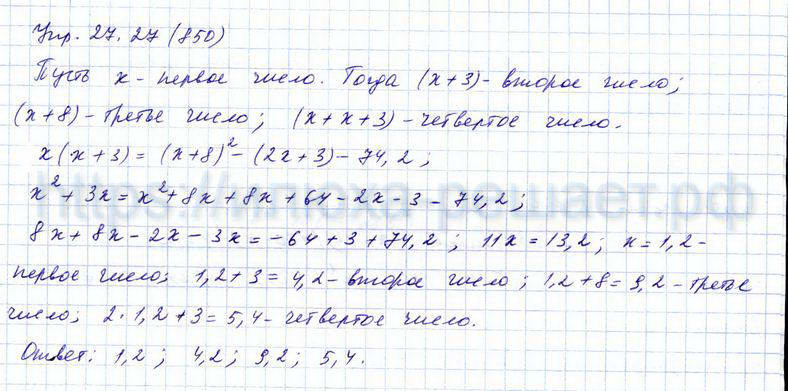 Упр. 27.27 (850)
Пусть x - первое число. Тогда (x+3) - второе число;
(x+8) - третье число; (x+x+3) - четвертое число.
x(x+3) = (x+8)² - (2x+3) - 74,2;
x² + 3x = x² + 8x + 8x + 64 - 2x - 3 - 74,2;
8x + 8x - 2x - 3x = -64 + 3 + 74,2; 11x = 13,2; x = 1,2 -
первое число; 1,2 + 3 = 4,2 - второе число; 1,2 + 8 = 9,2 - третье
число; 2·1,2 + 3 = 5,4 - четвертое число.
Ответ: 1,2; 4,2; 9,2; 5,4.